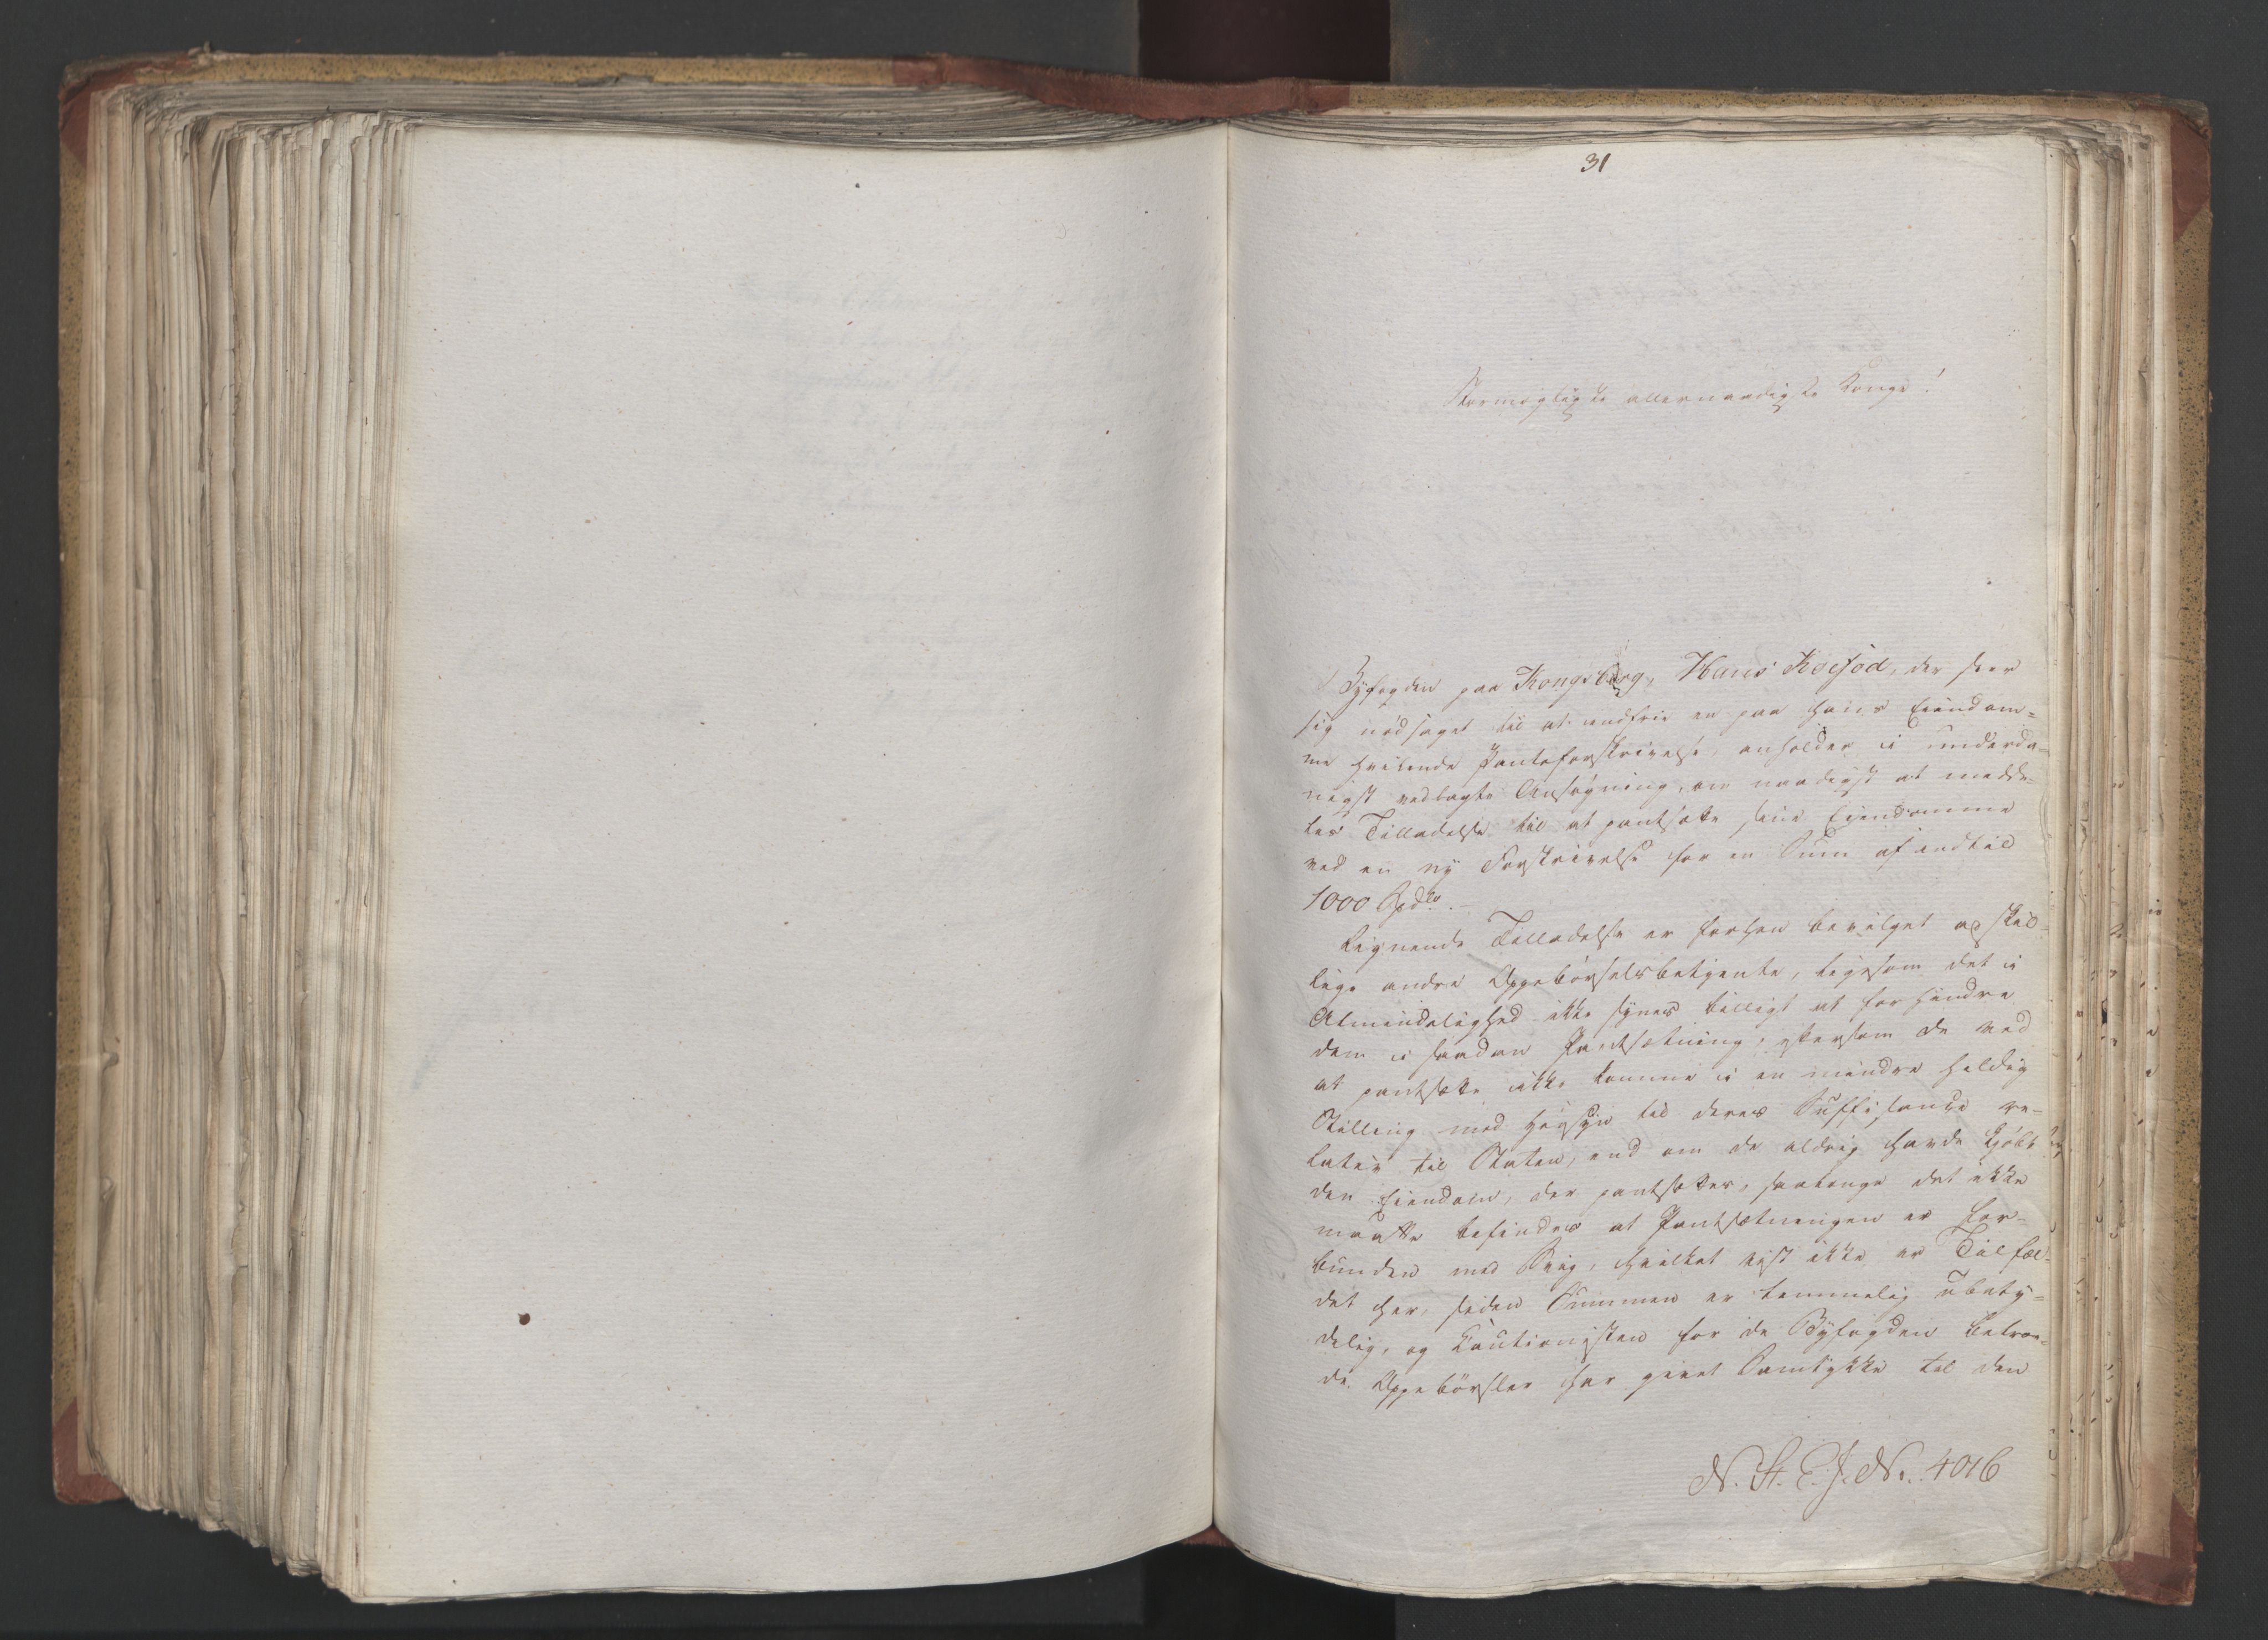 31
Stormægtigste allernaadigste Konge!
Byfogden paa Kongsberg, Hans Koefod, der seer
sig nødsaget til at indfrie en paa hans Eiendom-
me hvilende Panteforskrivelse, anholder i underda-
nigst vedlagte Ansøgning, om naadigst at medde-
les Tilladelse til at pantsætte sine Eiendomme
ved en ny Forskrivelse for en Sum af indtil
1000 Spdlr.
Lignende Tilladelse er forhen bevilget adskil-
lige andre Oppebørselsbetjente, ligesom det i
Almindelighed ikke synes billigt at forhindre
dem i saadan Pantsætning, eftersom de ved
at pantsætte ikke komme i en mindre heldig
Stilling med Hensyn til deres Suffisance re-
lativ til Staten, end om de aldrig havde kjøbt
den Eiendom, der pantsættes, saalænge det ikke
maatte befindes at Pantsætningen er for-
bunden med Svig, hvilket vist ikke er Tilfæl-
det her, siden Summen er temmelig ubety-
delig, og Cautionisten for de Byfogden betroe-
de Oppebørsler har givet Samtykke til den
N. St. E. J. No. 4016